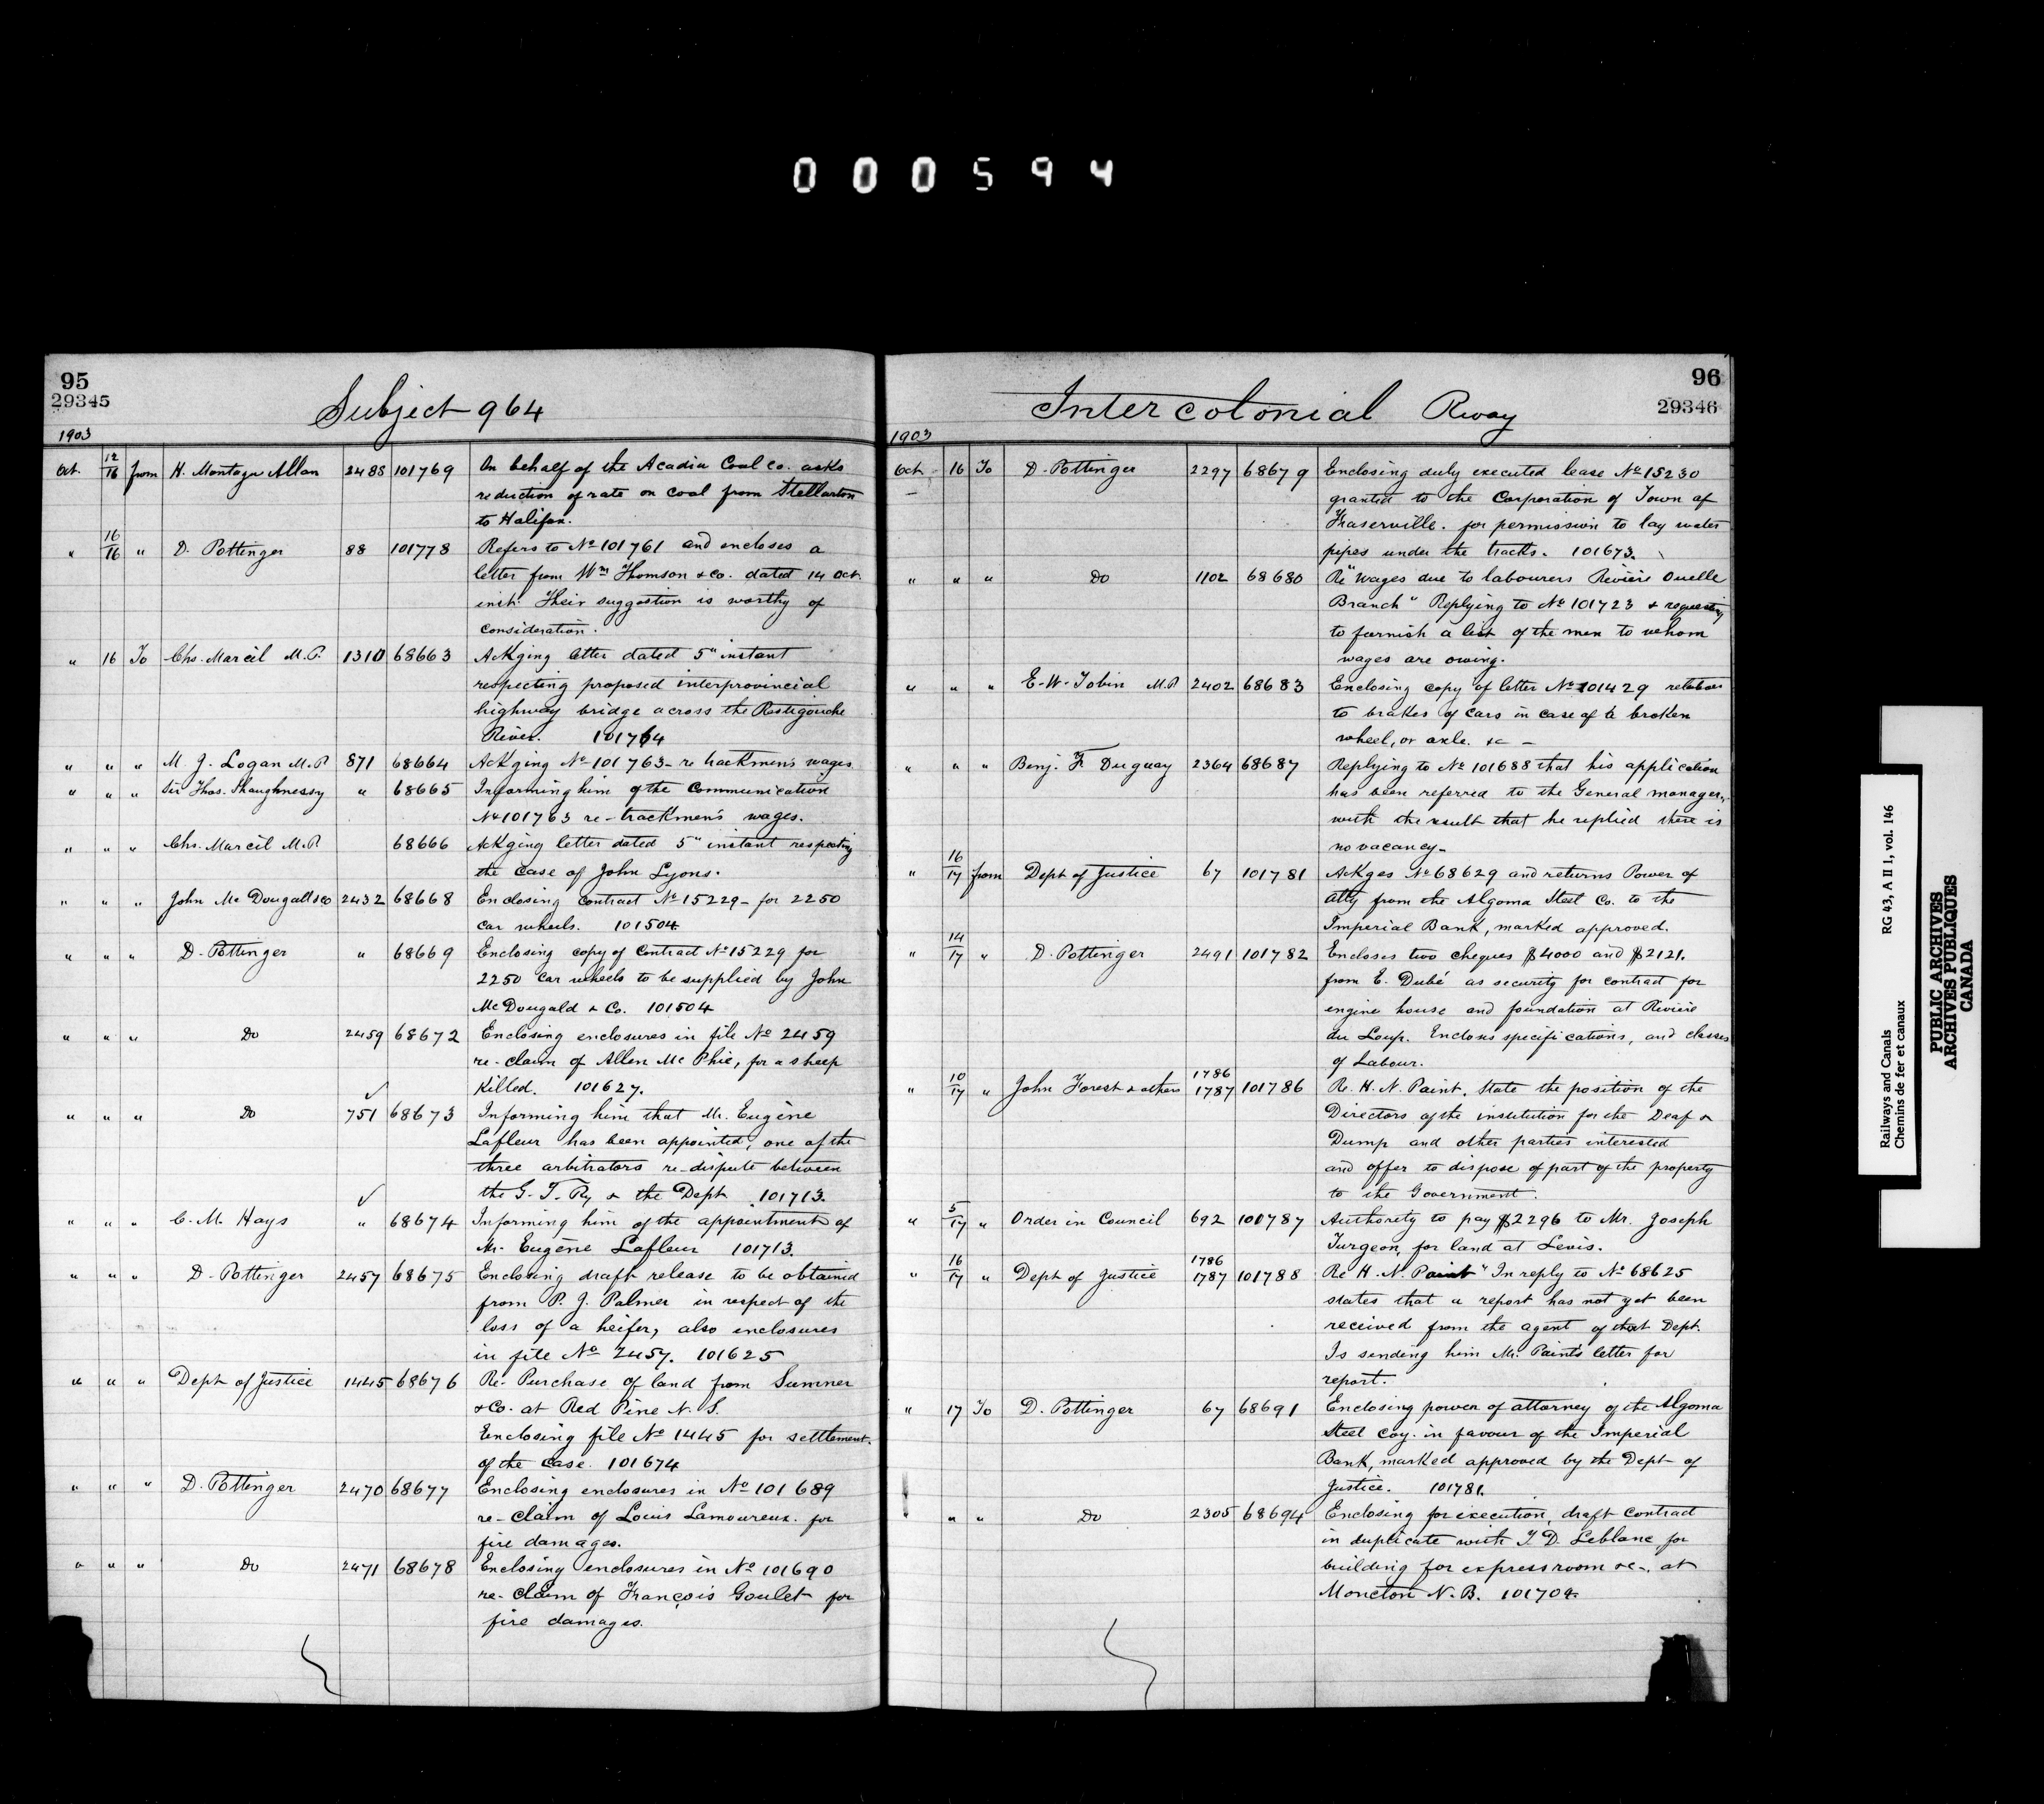 000594
95
29345
Subject 964
1903
Oct. 12/16 from H. Montagu Allan 2488 101769 On behalf of the Acadia Coal Co. asks
reduction of rate on coal from Stellarton
to Halifax.
" 16/16 " D. Pottinger 88 101778 Refers to No 101761 and encloses a
letter from Wm Thomson & Co. dated 14 Oct.
inst. Their suggestion is worthy of
consideration.
" 16 To Chs. Marcil M.P. 1310 68663 Ackging letter dated 5" instant
respecting proposed interprovincial
highway bridge across the Restigouche
River. 101764
" " " M. J. Logan M.P 871 68664 Ackging No 101763 - re trackmen's wages
" " " Sir Thos. Shaughnessy " 68665 Informing him of the Communication
No 101763 re-trackmen's wages.
" " " Chs. Marcil M.P. 68666 Ackging letter dated 5" instant respecting
the case of John Lyons.
" " " John Mc Dougall &co 2432 68668 Enclosing contract No 15229 - for 2250
car wheels. 101504
" " " D. Pottinger " 68669 Enclosing copy of Contract No 15229 for
2250 car wheels to be supplied by John
McDougald & Co. 101504
" " " Do 2459 68672 Enclosing enclosures in file No 2459
re-claim of Allen Mc Phie, for a sheep
Killed. 101627.
" " " Do 751 68673 Informing him that Mr. Eugène
Lafleur has been appointed, one of the
three arbitrators re-dispute between
the G. T. Ry & the Dept 101713.
" " " C. M. Hays " 68674 Informing him of the appointment of
Mr. Eugène Lafleur 101713.
" " " D. Pottinger 2457 68675 Enclosing draft release to be obtained
from P. J. Palmer in respect of the
loss of a heifer, also enclosures
in file No 2457. 101625
" " " Dept of Justice 1445 68676 Re- Purchase of land from Sumner
& Co. at Red Pine N. S.
Enclosing file No 1445 for settlement
of the case. 101674
" " " D. Pottinger 2470 68677 Enclosing enclosures in No 101689
re-claim of Louis Lamoureux. for
fire damages.
" " " Do 2471 68678 Enclosing enclosures in No 101690
re-claim of François Goulet for
fire damages.
96
29346
Intercolonial Rway
1903
Oct 16 To D. Pottinger 2297 68679 Enclosing duly executed lease No 15230
granted to the Corporation of Town of
Fraserville. for permission to lay water
pipes under the tracks. 101673.
" " " Do 1102 68680 Re "Wages due to labourers Rivière Ouelle
Branch" Replying to No 101723 & requesting
to furnish a list of the men to whom
wages are owing.
" " " E. W. Tobin M.P 2402 68683 Enclosing copy of letter No 101429 relative
to brakes of cars in case of a broken
wheel, or axle. &c -
" " " Benj. F. Duguay 2364 68687 Replying to No 101688 that his application
has been referred to the General manager,
with the result that he replied there is
no vacancy -
" 16/17 from Dept of Justice 67 101781 Ackges No 68629 and returns Power of
Atty from the Algoma Steel Co. to the
Imperial Bank, marked approved.
" 14/17 " D. Pottinger 2491 101782 Encloses two cheques $4000 and $2121.
from E. Dubé as security for contract for
engine house and foundation at Rivière
du Loup. Encloses specifications, and classes
of Labour.
" 10/17 " John Forest & others 1786 1787 101786 Re. H. N. Paint. State the position of the
Directors of the institution for the Deaf &
Dump and other parties interested
and offer to dispose of part of the property
to the Government.
" 5/17 " Order in Council 692 101787 Authority to pay $2296 to Mr. Joseph
Turgeon, for land at Levis.
" 16/17 " Dept of Justice 1786 1787 101788 Re H. N. Paint" In reply to No 68625
states that a report has not yet been
received from the agent of that Dept.
Is sending him Mr. Paint's letter for
report.
" 17 To D. Pottinger 67 68691 Enclosing power of attorney of the Algoma
Steel Coy. in favour of the Imperial
Bank, marked approved by the Dept of
Justice. 101781.
" " " Do 2305 68694 Enclosing for execution, draft contract
in duplicate with J. D. Leblanc for
building for express room &c-, at
Moncton N. B. 101704.
Railways and Canals RG 43, A II 1, vol. 146
Chemins de fer et canaux
PUBLIC ARCHIVES
ARCHIVES PUBLIQUES
CANADA